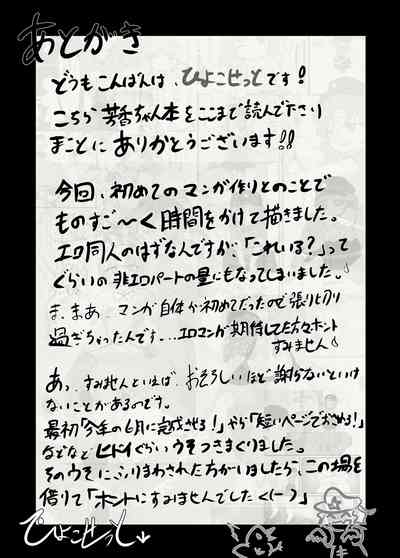 あとがき
どうもこんばんは、ひよこせっとです!
こちら芳香ちゃん本をここまで読んで下さり
まことにありがとうございます!!
今回、初めてのマンガ作りとのことで
ものすご〜く時間をかけて描きました。
エロ同人のはずなんですが、「これいる?」って
ぐらいの非エロパートの量にもなってしまいました。
ま、まあ、マンガ自体が初めてだったので張り切り
過ぎちゃったんです...エロマンガ期待してた方々ホント
すみません
あっ、すみませんといえば、おそろしいほど謝らないといけ
ないことがあるのです。
最初「今年の6月に完成させる!」やら「短いページでおさめる!」
などなどヒドイぐらいウソつきまくりました。
そのウソにふりまわされた方がいましたら、この場を
借りて「ホントにすみませんでした<(--)」
ひよこせっと